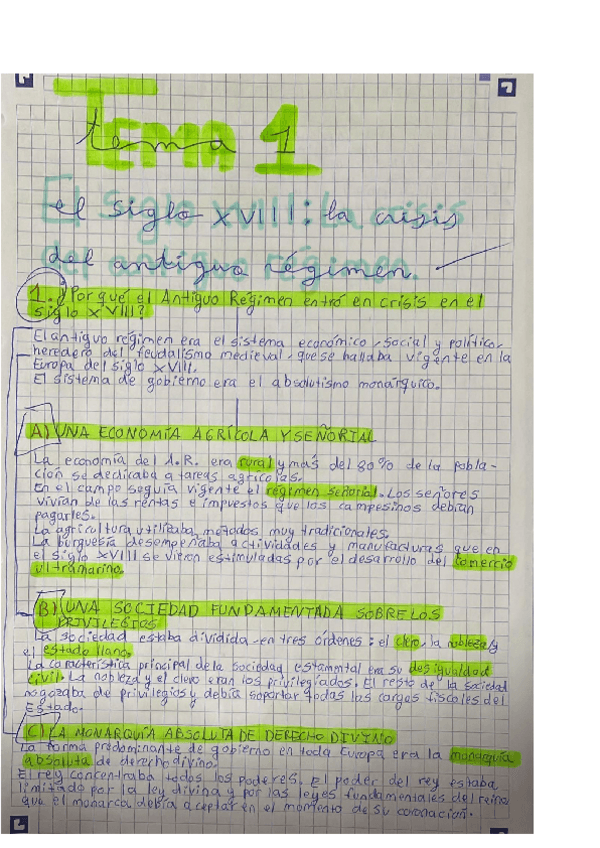 Tema 1
El siglo XVIII: la crisis
del antiguo régimen.
1. ¿Por qué el Antiguo Régimen entró en crisis en el
siglo XVIII?
El antiguo régimen era el sistema económico, social y político,
heredero del feudalismo medieval, que se hallaba vigente en la
Europa del siglo XVIII.
El sistema de gobierno era el absolutismo monárquico.
A) UNA ECONOMÍA AGRÍCOLA Y SEÑORIAL
La economía del A.R. era rural y más del 80% de la pobla-
ción se dedicaba a tareas agrícolas.
En el campo seguía vigente el régimen señorial. Los señores
vivían de las rentas e impuestos que los campesinos debían
pagarles.
La agricultura utilizaba métodos muy tradicionales.
La burguesía desempeñaba actividades y manufacturas que en
el siglo XVIII se vieron estimuladas por el desarrollo del comercio
ultramarino.
B) UNA SOCIEDAD FUNDAMENTADA SOBRE LOS
PRIVILEGIOS
La sociedad estaba dividida en tres órdenes: el clero, la nobleza y
el estado llano.
La característica principal de la sociedad estamental era su desigualdad
civil. La nobleza y el clero eran los privilegiados. El resto de la sociedad
no gozaba de privilegios y debía soportar todas las cargas fiscales del
Estado.
C) LA MONARQUÍA ABSOLUTA DE DERECHO DIVINO
La forma predominante de gobierno en toda Europa era la monarquía
absoluta de derecho divino.
El rey concentraba todos los poderes. El poder del rey estaba
limitado por la ley divina y por las leyes fundamentales del reino
que el monarca debía aceptar en el momento de su coronación.